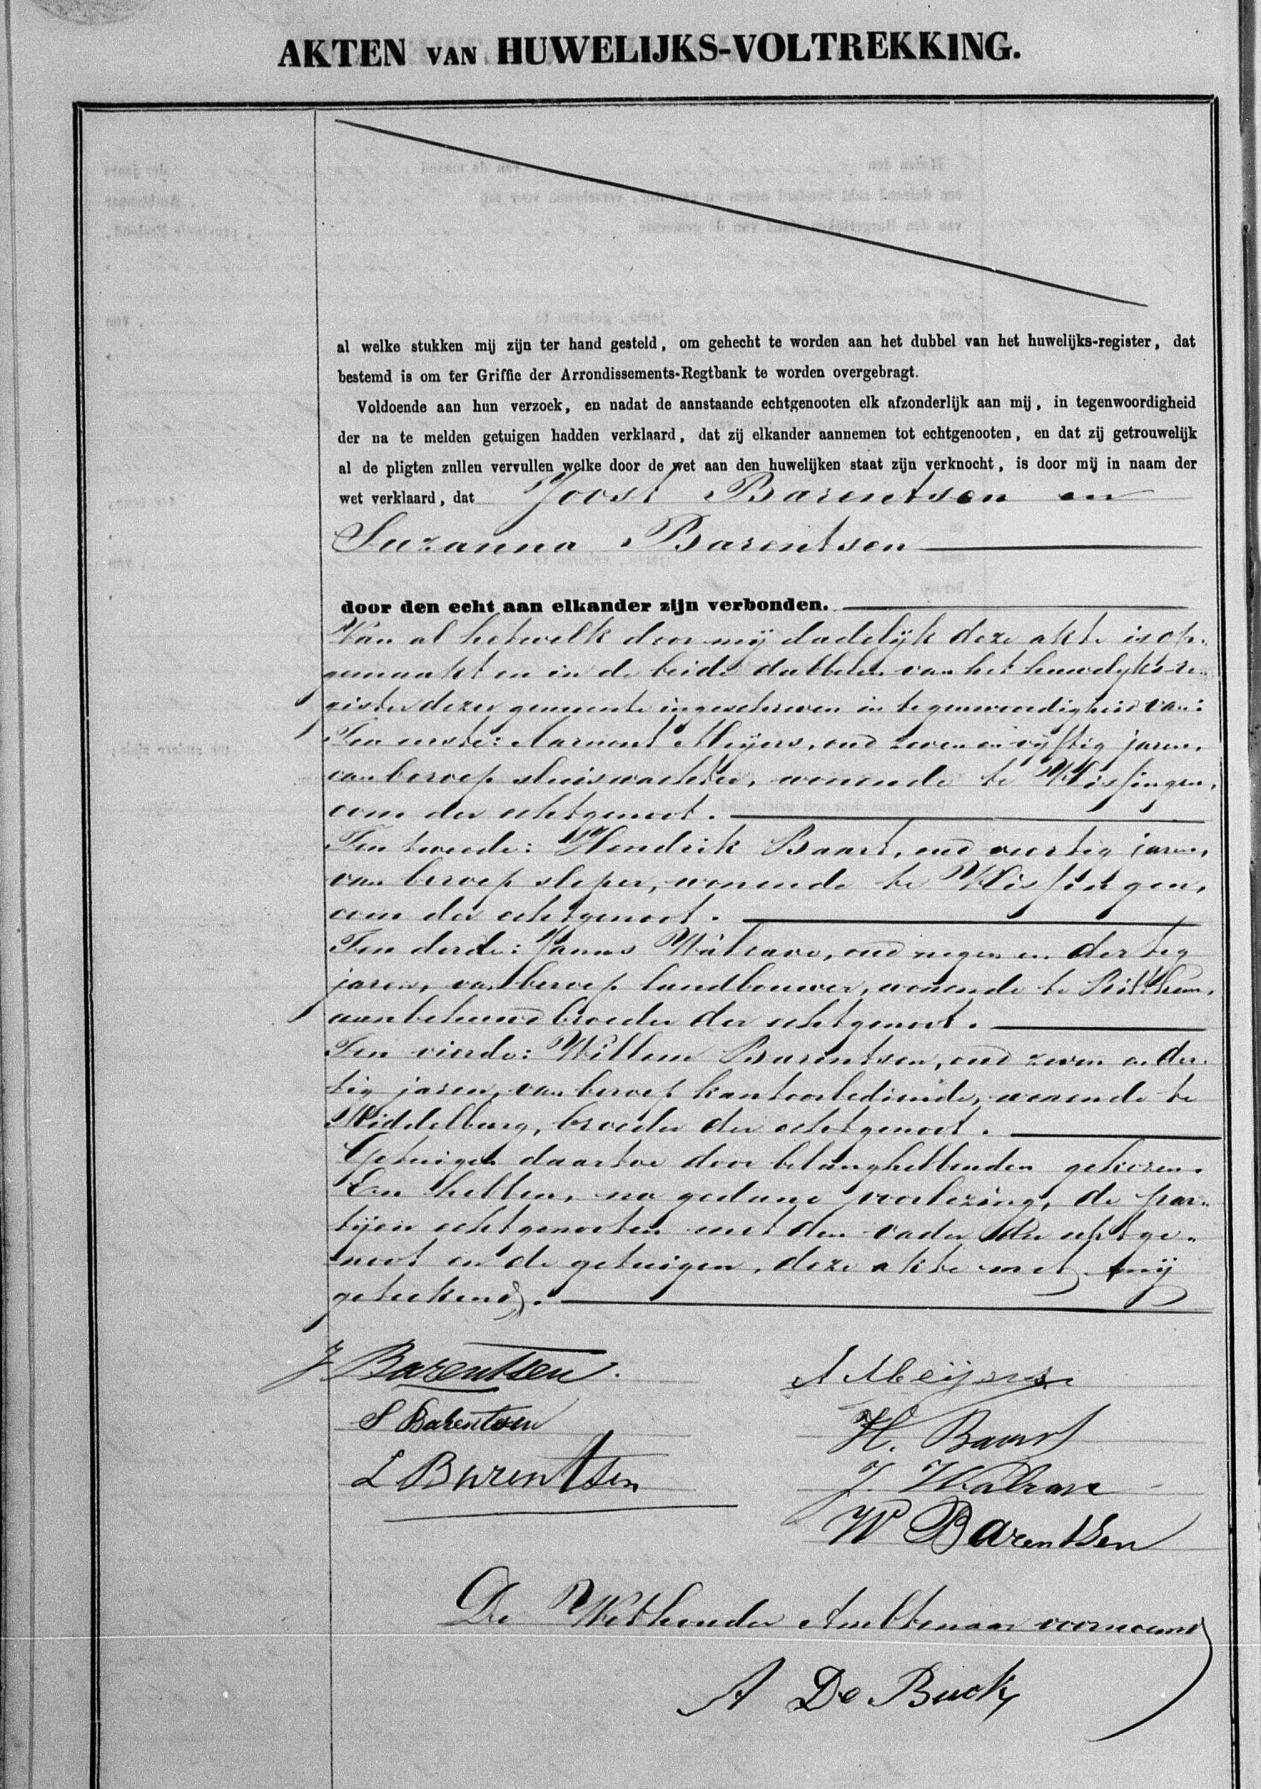 AKTEN VAN HUWELIJKS-VOLTREKKING.
al welke stukken mij zijn ter hand gesteld, om gehecht te worden aan het dubbel van het huwelijks-register, dat
bestemd is om ter Griffie der Arrondissements-Regtbank te worden overgebragt.
Voldoende aan hun verzoek, en nadat de aanstaande echtgenooten elk afzonderlijk aan mij, in tegenwoordigheid
der na te melden getuigen hadden verklaard, dat zij elkander aannemen tot echtgenooten, en dat zij getrouwelijk
al de pligten zullen vervullen welke door de wet aan den huwelijken staat zijn verknocht, is door mij in naam der
wet verklaard, dat Joost Barentsen en
Suzanna Barentsen
door den echt aan elkander zijn verbonden.
Van al hetwelk door mij dadelijk deze akte is op-
gemaakt en in de beide dubbelen van het huwelijks-re-
gister dezer gemeente ingeschreven in tegenwoordigheid van:
Ten eerste: Aarnout Meijers, oud zeven en vijftig jaren,
van beroep sluiswachter, wonende te Vlissingen,
oom der echtgenoot.
Ten tweede: Hendrik Baart, oud veertig jaren,
van beroep sleper, wonende te Vlissingen,
oom der echtgenoot.
Ten derde: Jannis Walrave, oud negen en dertig
jaren, van beroep landbouwer, wonende te Ritthem,
aanbehuwd broeder der echtgenoot.
Ten vierde: Willem Barentsen, oud zeven en der-
tig jaren, van beroep kantoorbediende, wonende te
Middelburg, broeder der echtgenoot.
Getuigen daartoe door belanghebbenden gekozen.
En hebben, na gedane voorlezing, de par-
tijen echtgenooten met den vader der echtge-
noot en de getuigen, deze akte met mij
geteekend.
J Barentsen. A Meijers
S Barentsen H. Baart
L Barentsen J. Walrave
W Barentsen
De Wethouder Ambtenaar voornoemd
A De Buck